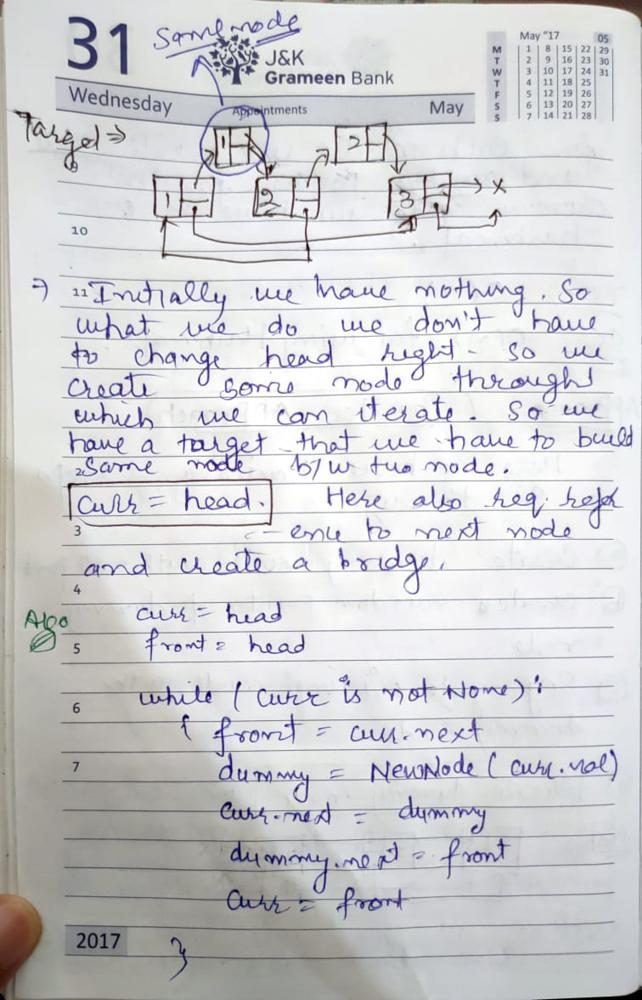 31
Same node
J&K
Grameen Bank
May "17 05
M 1 8 15 22 29
T 2 9 16 23 30
W 3 10 17 24 31
T 4 11 18 25
F 5 12 19 26
S 6 13 20 27
S 7 14 21 28
Wednesday Appointments May
Target ⇒
1 2
1 2 3 → x
10
⇒ 11 Initially we have nothing. So
what we do we don't have
to change head right. So we
create some node throught
which we can iterate. So we
have a target that we have to build
2 Same node b/w two node.
curr = head. Here also req. refer
3 - ence to next node
and create a bridge.
4
Algo curr = head
5 front = head
6 while (curr is not None):
{ front = curr.next
7 dummy = NewNode (curr.val)
curr.next = dummy
dummy.next = front
curr = front
2017 }